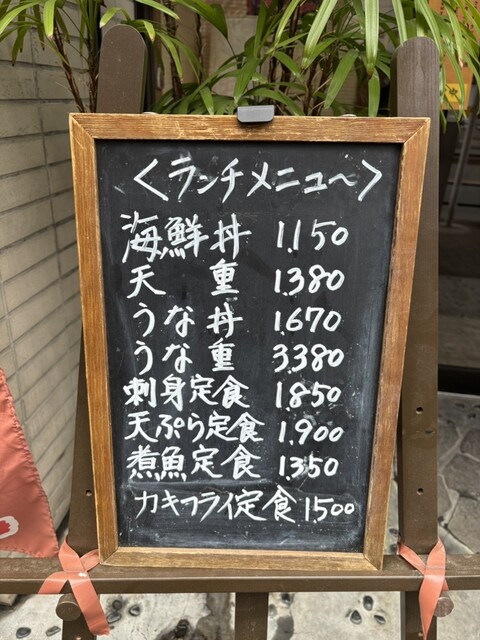 <ランチメニュー>
海鮮丼 1.150
天重 1.380
うな丼 1.670
うな重 3.380
刺身定食 1.850
天ぷら定食 1.900
煮魚定食 1.350
カキフライ定食 1500